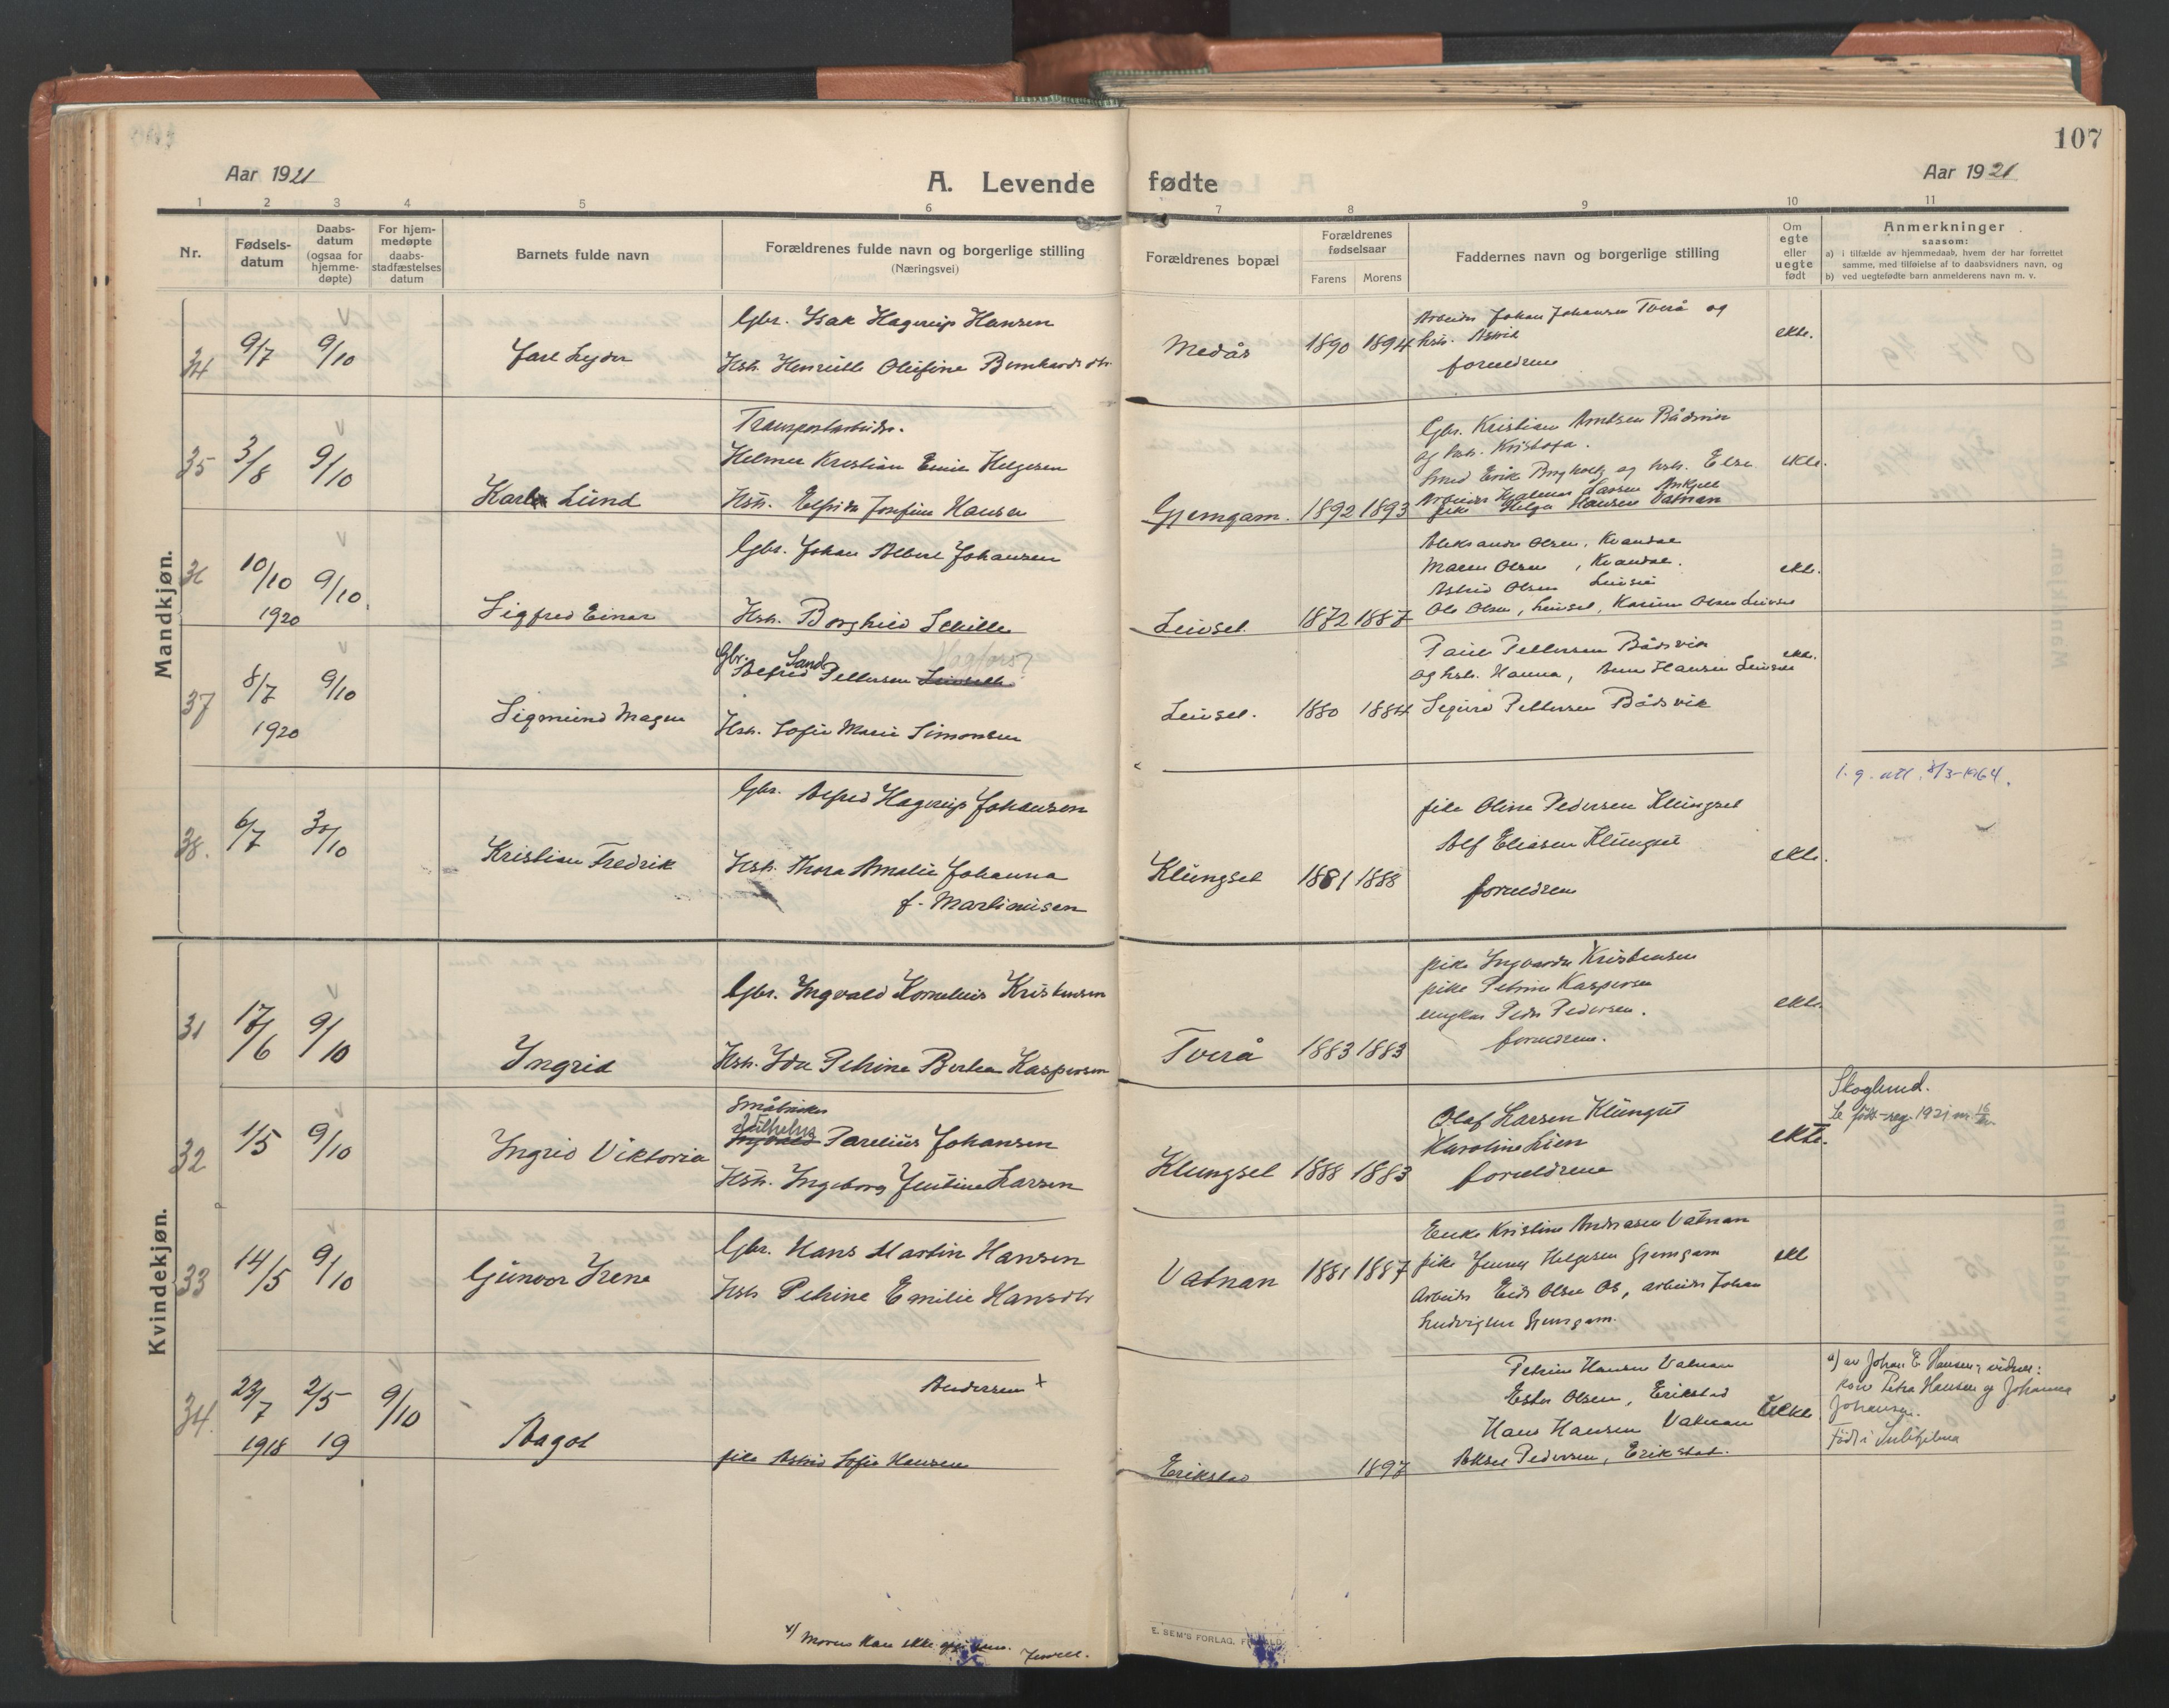 107
Aar 1921
A. Levende fødte
Aar 1921
1 2 3 4 5 6 7 8 9 10 11
Nr.
Fødsels-
datum
Daabs-
datum
(ogsaa for
hjemme-
døpte)
For hjem-
medøpte
daabs-
stadfæstelses
datum
Barnets fulde navn
Forældrenes fulde navn og borgerlige stilling
(Næringsvei)
Forældrenes bopæl
Forældrenes
fødselsaar
Farens Morens
Faddernes navn og borgerlige stilling
Om
egte
eller
uegte
født
Anmerkninger
saasom:
a) i tilfælde av hjemmedaab, hvem der har forrettet
samme, med tilføielse af to daabsvidners navn, og
b) ved uegtefødte barn anmelderens navn m. v.
Mandkjøn.
34 9/7 9/10
Jarl Lyder
Gbr. Isak Hagerup Hansen
Hstr. Henriette Olufine Bernhardsdtr.
Medås 1890 1894
Arbeider Johan Johansen Tverå og
hstr. Astrid
forældrene
ekte.
35 3/8 9/10
Karl Lund
Transportarbeider.
Helmer Kristian Emil Helgesen
Hstr. Elfrida Josefine Hansen
Gjemgam. 1892 1893
Gbr. Kristian Arntsen Bådsvik
og hstr. Kristofa.
Smed Erik Borgholtz og hstr. Else
Arbeider Hjalmar Larsen
pike Helga Hansen Vatnan
ekte.
36 10/10 1920 9/10.
Sigfred Einar
Gbr. Johan Albert Johansen
Hstr. Borghild Schille
Leivset. 1872 1887
Aleksander Olsen, Kvandal
Maren Olsen, Kvandal.
Astrid Olsen Leivset
Ole Olsen, Leivset, Karine Olsen Leivset
ekte.
37 8/7 1920 9/10
Sigmund Magne
Gbr. Alfred Sand Pettersen Leivseth
Vagfors?
Hstr. Sofie Marie Simonsen
Leivset. 1880 1884
Paul Pettersen Bådsvik
og hstr. Hanna, Anna Hansen Leivset
Sigurd Pettersen Bådsvik
ekte.
38. 6/7 30/10
Kristian Fredrik
Gbr. Alfred Hagerup Johansen
Hstr. Thora Amalie Johanna
f. Martinusen
Klungset 1881 1888
pike Oline Pedersen Klungset
Alf Eliasen Klungset
forældrene
ekte.
1. g. att. 8/3-1964.
Kvindekjøn.
31 17/6 9/10
Ingrid
Gbr. Ingvald Kornelius Kristensen
Hstr. Ida Petrine Bertea Kaspersen
Tverå 1883 1883
pike Ingvarda Kristensen
pike Petrine Kaspersen
ungkar Peder Pedersen.
forældrene.
ekte.
32 1/5 9/10
Ingrid Viktoria
Småbruker
Vilhelm
Ingvald Parelius Johansen
Hstr. Ingeborg Justine Larsen
Klungset 1888 1883
Olaf Larsen Klungset
Karoline Lien
forældrene
ekte.
Skoglund.
Se født-reg. 1921 nr.
33 14/5 9/10
Gunvor Irene
Gbr. Hans Martin Hansen
Hstr Petrine Emilie Hansdtr
Vatnan 1881 1887
Enke Kristine Andreasen Vatnan
pike Jenny Helgesen Gjemgam
Arbeider Eidr Olsen Os, arbeider Johan
Ludvigsen Gjemgam.
ekte
34. 23/7 1918 2/5 19 9/10
Aagot
Andersen x
pike Astrid Sofie Hansen
Erikstad 1897
Petrine Hansen Vatnan
Ester Olsen, Erikstad
Hans Hansen Vatnan
Aksel Pedersen, Erikstad.
Uekte
a) av Johan E. Hansen, vidner:
kone Petra Hansen og Johanna
Johansen.
Født i Sulitjelma
x) Moren kan ikke opgi
E. SEM'S FORLAG, F HALD